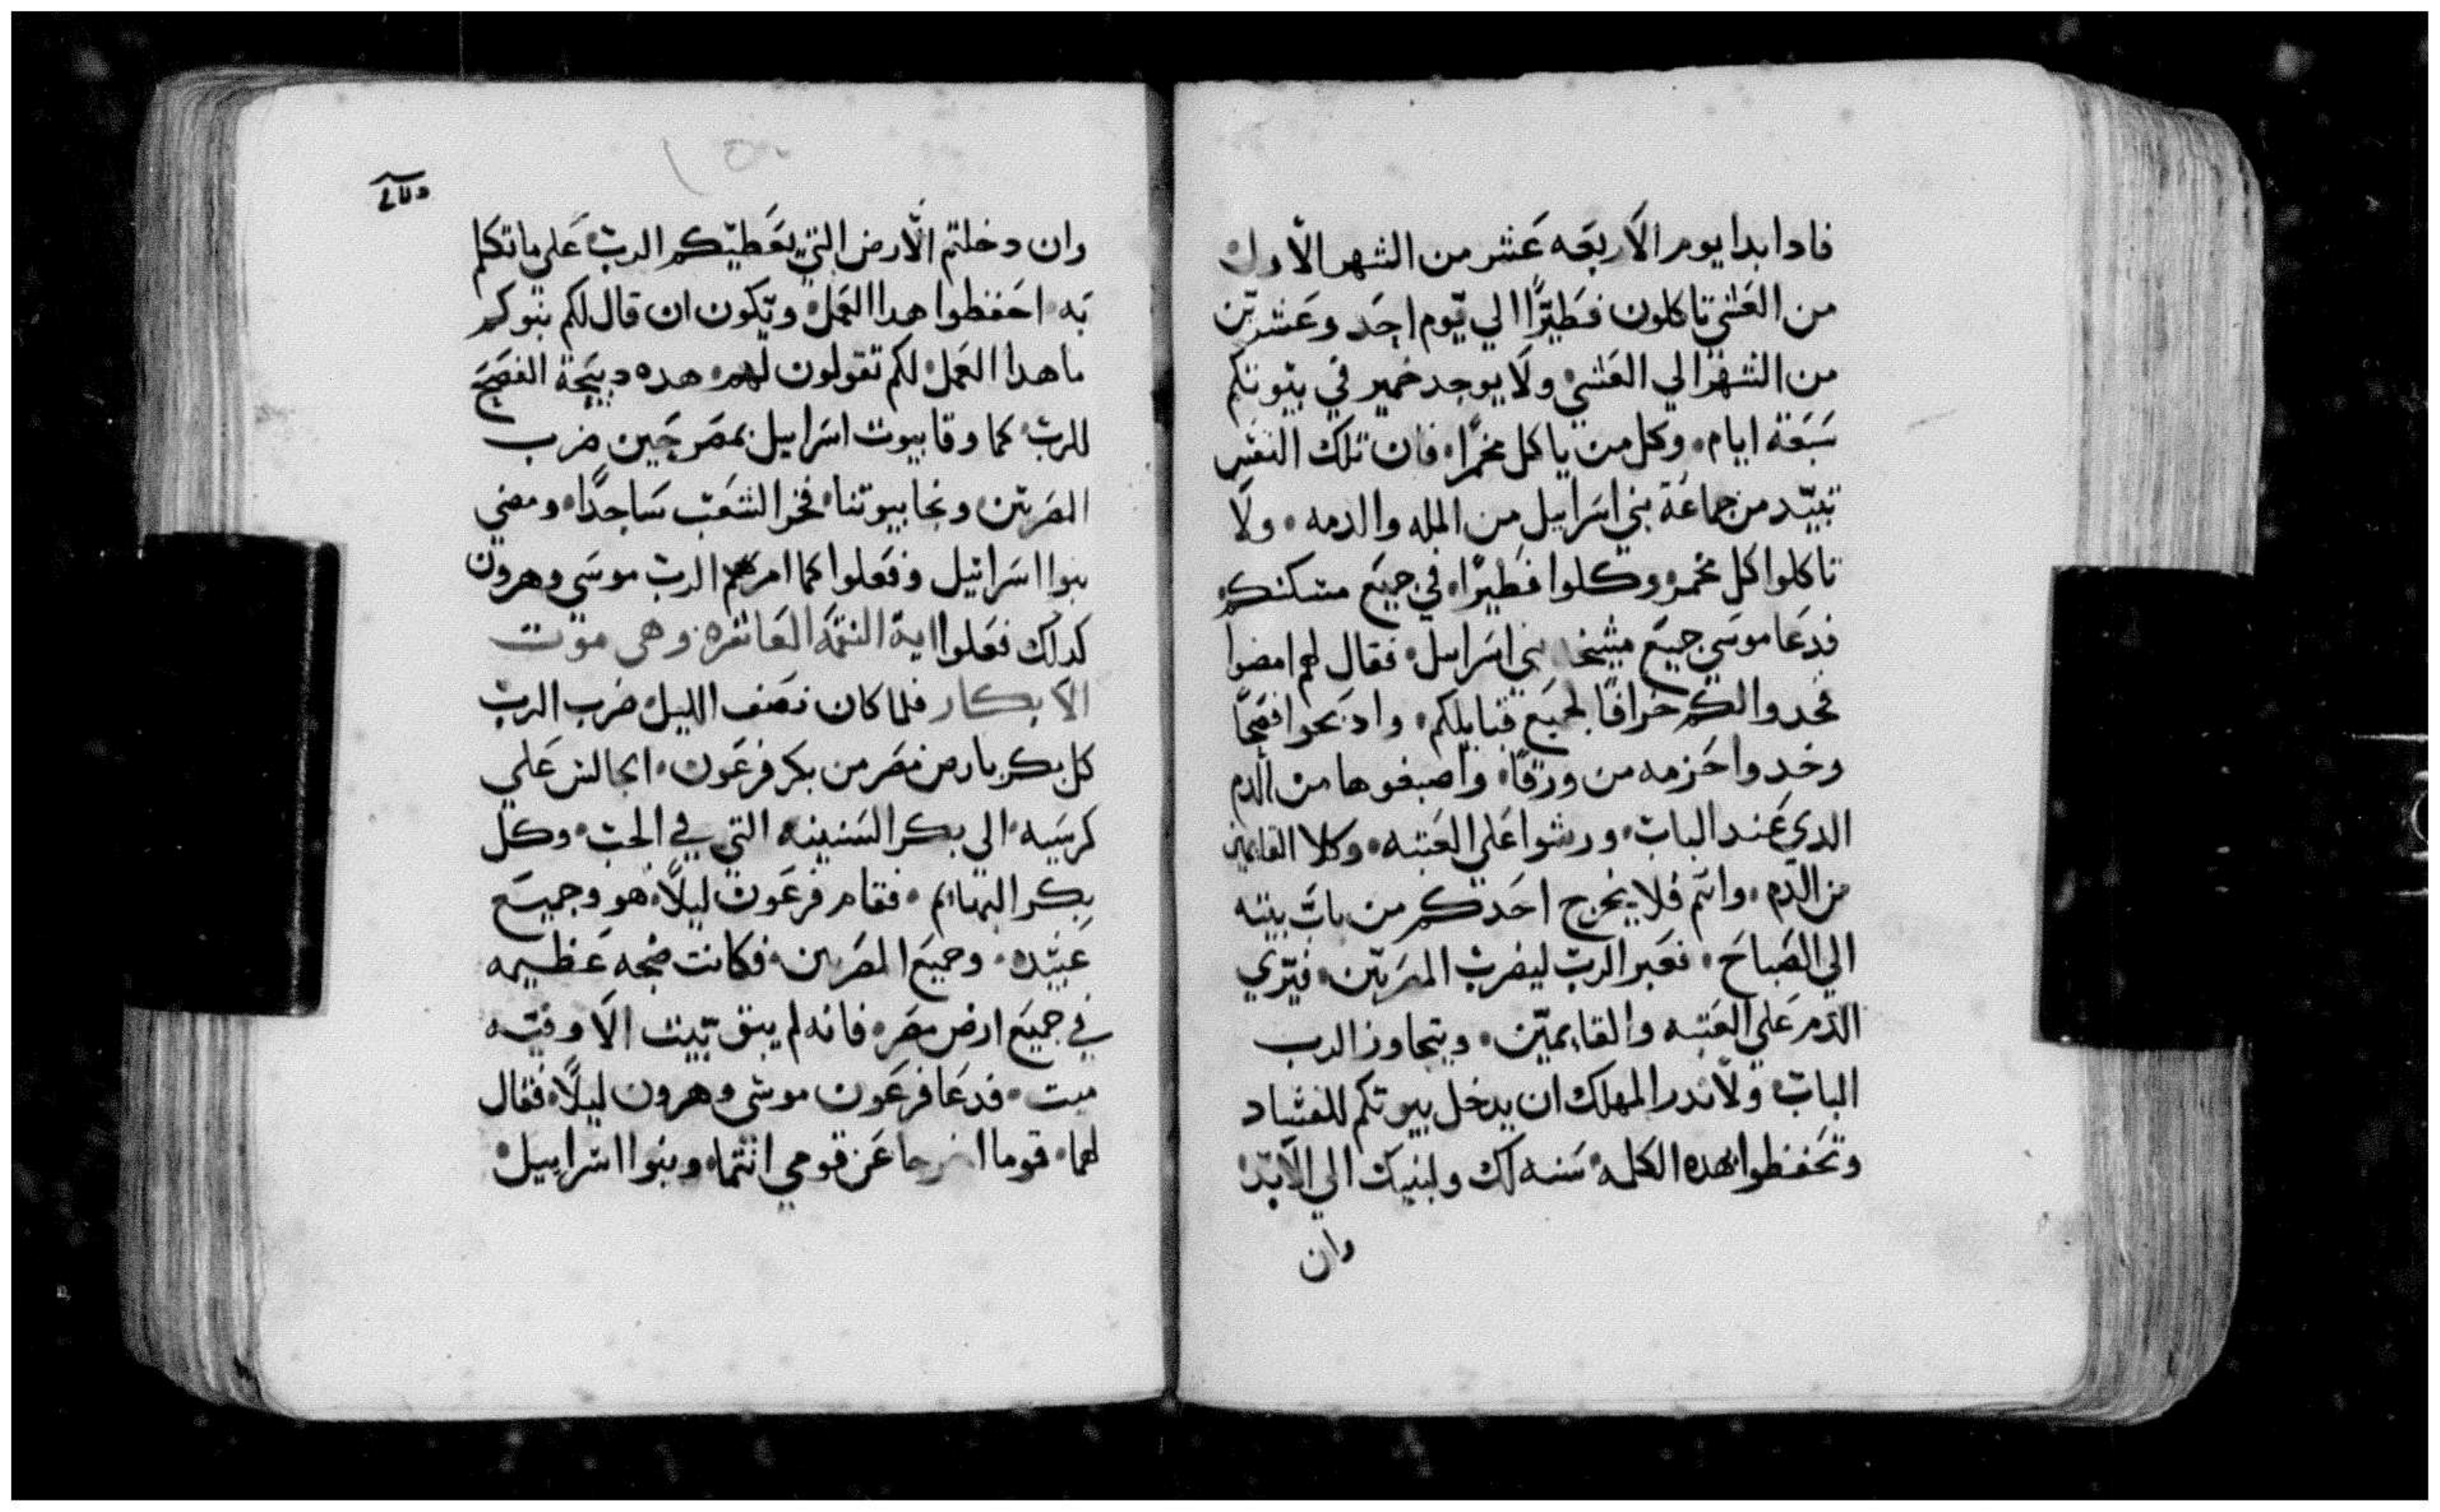 فادا بدا يوم الاربعه عشر من الشهر الاول
من العشي تاكلون فطيرًا الي يوم احد وعشرين
من الشهر الي العشي ولا يوجد خمير في بيوتكم
سبعة ايام وكل من ياكل مخمرًا فان تلك النفس
تبيد من جماعة بني اسراييل من المله والدمه ولا
تاكلوا كل مخمر وكلوا فطيرًا في جميع مسكنكم
فدعا موسي جميع مشيخة بني اسراييل فقال لهم امضوا
فخدوا لكم خرافًا لجميع قبايلكم وادبحوا فصحًا
وخدوا حزمه من ورقًا واصبغوها من الدم
الدي عند الباب ورشوا علي العتبه وكلا القايمين
من الدم وانتم فلا يخرج احدكم من باب بيته
الي الصباح فعبر الرب ليضرب المصريين فيري
الدم علي العتبه والقايميين ويتجاوز الرب
الباب ولا ندر المهلك ان يدخل بيوتكم للفساد
وتحفظوا هده الكلمه سنه لك ولبنيك الي الابد
وان
وان دخلتم الارض التي يعطيكم الرب علي ما تكلم
به احفظوا هدا العمل ويكون ان قال لكم بنوكم
ما هدا العمل لكم تقولون لهم هده دبيحة الفصح
للرب كما وقا بيوت اسراييل بمصر حين ضرب
المصريين ونجا بيوتنا فخر الشعب ساجدًا ومضي
بنوا اسرائيل وفعلوا كما امرهم الرب موسي وهرون
كدلك فعلوا اية النقمه العاشره وهي موت
الابكار فلما كان نصف الليل ضرب الرب
كل بكر بارض مصر من بكر فرعون الجالس علي
كرسيه الي بكر السنينه التي في الجب وكل
بكر البهائم فقام فرعون ليلًا هو وجميع
عبيده وجميع المصريين فكانت ضجه عظيمه
في جميع ارض مصر فانه لم يبق بيت الا وفيه
ميت فدعا فرعون موسي وهرون ليلًا فقال
لهما قوما اخرجا عن قومي انتما وبنوا اسراييل